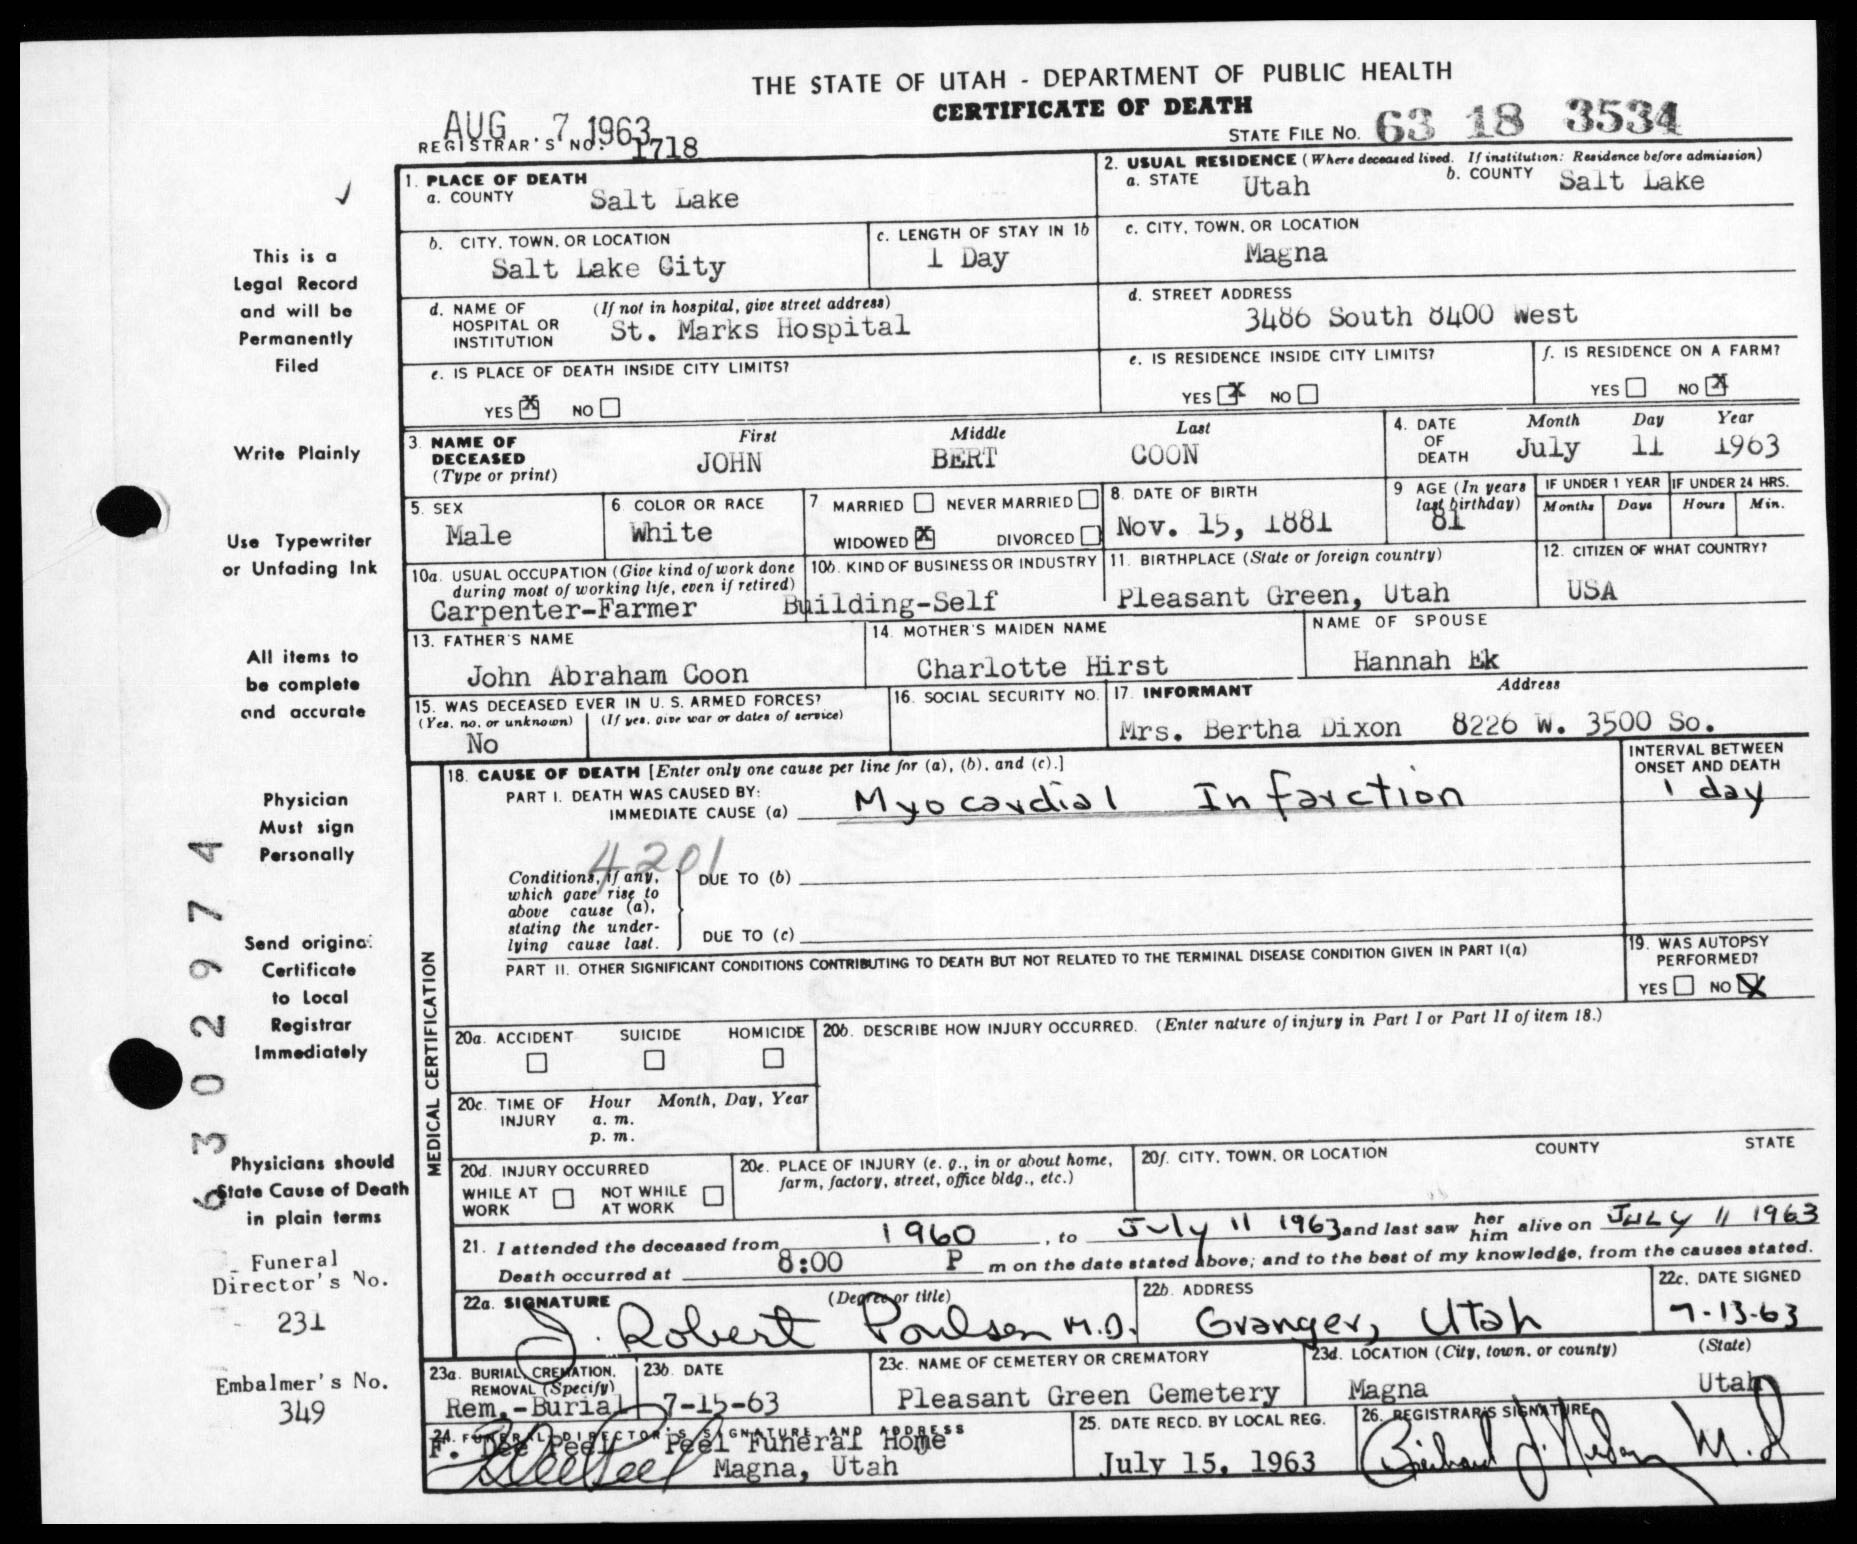 THE STATE OF UTAH - DEPARTMENT OF PUBLIC HEALTH
CERTIFICATE OF DEATH
AUG . 7 1963
REGISTRAR'S NO. 1718
STATE FILE NO. 63 18 3534
1. PLACE OF DEATH
a. COUNTY Salt Lake
2. USUAL RESIDENCE (Where deceased lived. If institution: Residence before admission)
a. STATE Utah b. COUNTY Salt Lake
b. CITY, TOWN, OR LOCATION
Salt Lake City
c. LENGTH OF STAY IN 1b
1 Day
c. CITY, TOWN, OR LOCATION
Magna
d. NAME OF HOSPITAL OR INSTITUTION (If not in hospital, give street address)
St. Marks Hospital
d. STREET ADDRESS
3486 South 8400 West
e. IS PLACE OF DEATH INSIDE CITY LIMITS?
YES X NO
e. IS RESIDENCE INSIDE CITY LIMITS?
YES X NO
f. IS RESIDENCE ON A FARM?
YES NO X
3. NAME OF DECEASED (Type or print)
First Middle Last
JOHN BERT COON
4. DATE OF DEATH
Month Day Year
July 11 1963
5. SEX
Male
6 COLOR OR RACE
White
7 MARRIED NEVER MARRIED
WIDOWED X DIVORCED
8. DATE OF BIRTH
Nov. 15, 1881
9 AGE (In years last birthday)
81
IF UNDER 1 YEAR
Months Days
IF UNDER 24 HRS.
Hours Min.
10a. USUAL OCCUPATION (Give kind of work done during most of working life, even if retired)
Carpenter-Farmer
10b. KIND OF BUSINESS OR INDUSTRY
Building-Self
11. BIRTHPLACE (State or foreign country)
Pleasant Green, Utah
12. CITIZEN OF WHAT COUNTRY?
USA
13. FATHER'S NAME
John Abraham Coon
14. MOTHER'S MAIDEN NAME
Charlotte Hirst
NAME OF SPOUSE
Hannah Ek
15. WAS DECEASED EVER IN U. S. ARMED FORCES?
(Yes, no, or unknown) (If yes, give war or dates of service)
No
16. SOCIAL SECURITY NO.
17. INFORMANT Address
Mrs. Bertha Dixon 8226 W. 3500 So.
MEDICAL CERTIFICATION
18. CAUSE OF DEATH [Enter only one cause per line for (a), (b), and (c).]
INTERVAL BETWEEN ONSET AND DEATH
PART I. DEATH WAS CAUSED BY:
IMMEDIATE CAUSE (a) Myocardial Infarction 1 day
4201
Conditions, if any, which gave rise to above cause (a), stating the underlying cause last.
DUE TO (b)
DUE TO (c)
PART II. OTHER SIGNIFICANT CONDITIONS CONTRIBUTING TO DEATH BUT NOT RELATED TO THE TERMINAL DISEASE CONDITION GIVEN IN PART I(a)
19. WAS AUTOPSY PERFORMED?
YES NO X
20a. ACCIDENT SUICIDE HOMICIDE
20b. DESCRIBE HOW INJURY OCCURRED. (Enter nature of injury in Part I or Part II of item 18.)
20c. TIME OF INJURY Hour Month, Day, Year
a. m.
p. m.
20d. INJURY OCCURRED
WHILE AT WORK NOT WHILE AT WORK
20e. PLACE OF INJURY (e. g., in or about home, farm, factory, street, office bldg., etc.)
20f. CITY, TOWN, OR LOCATION COUNTY STATE
21. I attended the deceased from 1960, to July 11 1963 and last saw her him alive on JULY 11 1963
Death occurred at 8:00 P m on the date stated above; and to the best of my knowledge, from the causes stated.
22a. SIGNATURE (Degree or title)
J. Robert Poulsen M.D.
22b. ADDRESS
Granger, Utah
22c. DATE SIGNED
7-13-63
23a. BURIAL, CREMATION, REMOVAL (Specify)
Rem.-Burial
23b. DATE
7-15-63
23c. NAME OF CEMETERY OR CREMATORY
Pleasant Green Cemetery
23d. LOCATION (City, town, or county) (State)
Magna Utah
24. FUNERAL DIRECTOR'S SIGNATURE AND ADDRESS
F. Dee Peel Peel Funeral Home
Magna, Utah
25. DATE RECD. BY LOCAL REG.
July 15, 1963
26. REGISTRAR'S SIGNATURE
M.D
This is a
Legal Record
and will be
Permanently
Filed
Write Plainly
Use Typewriter
or Unfading Ink
All items to
be complete
and accurate
Physician
Must sign
Personally
Send original
Certificate
to Local
Registrar
Immediately
Physicians should
State Cause of Death
in plain terms
Funeral
Director's No.
231
Embalmer's No.
349
6302974